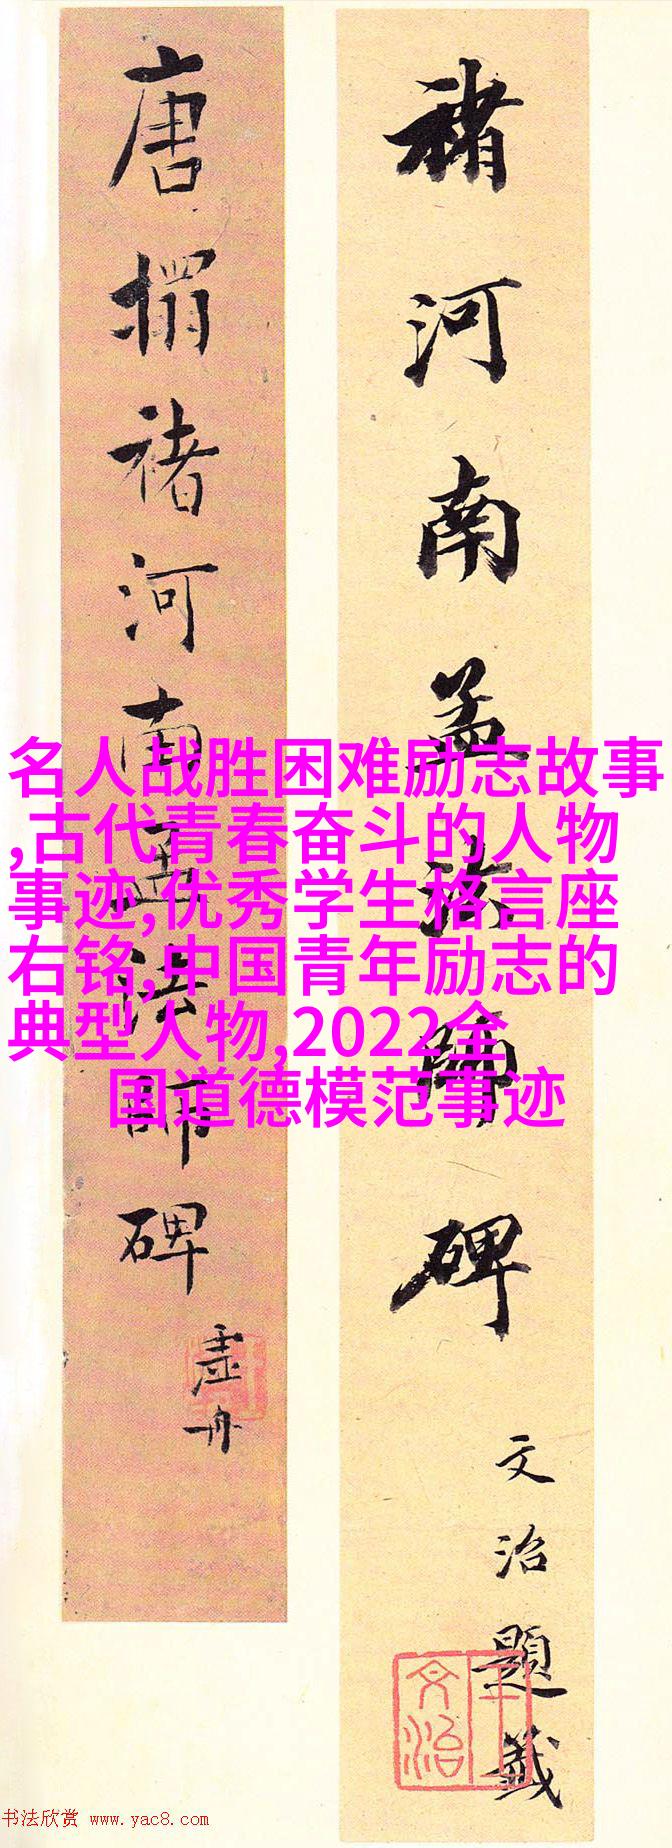 褚河南孟法師碑
文治題籤
王文治
唐搨褚河南孟法師碑
虛舟
名人战胜困难励志故事
,古代青春奋斗的人物
事迹,优秀学生格言座
右铭,中国青年励志的
典型人物,2022全
国道德模范事迹
书法欣赏 www.yac8.com